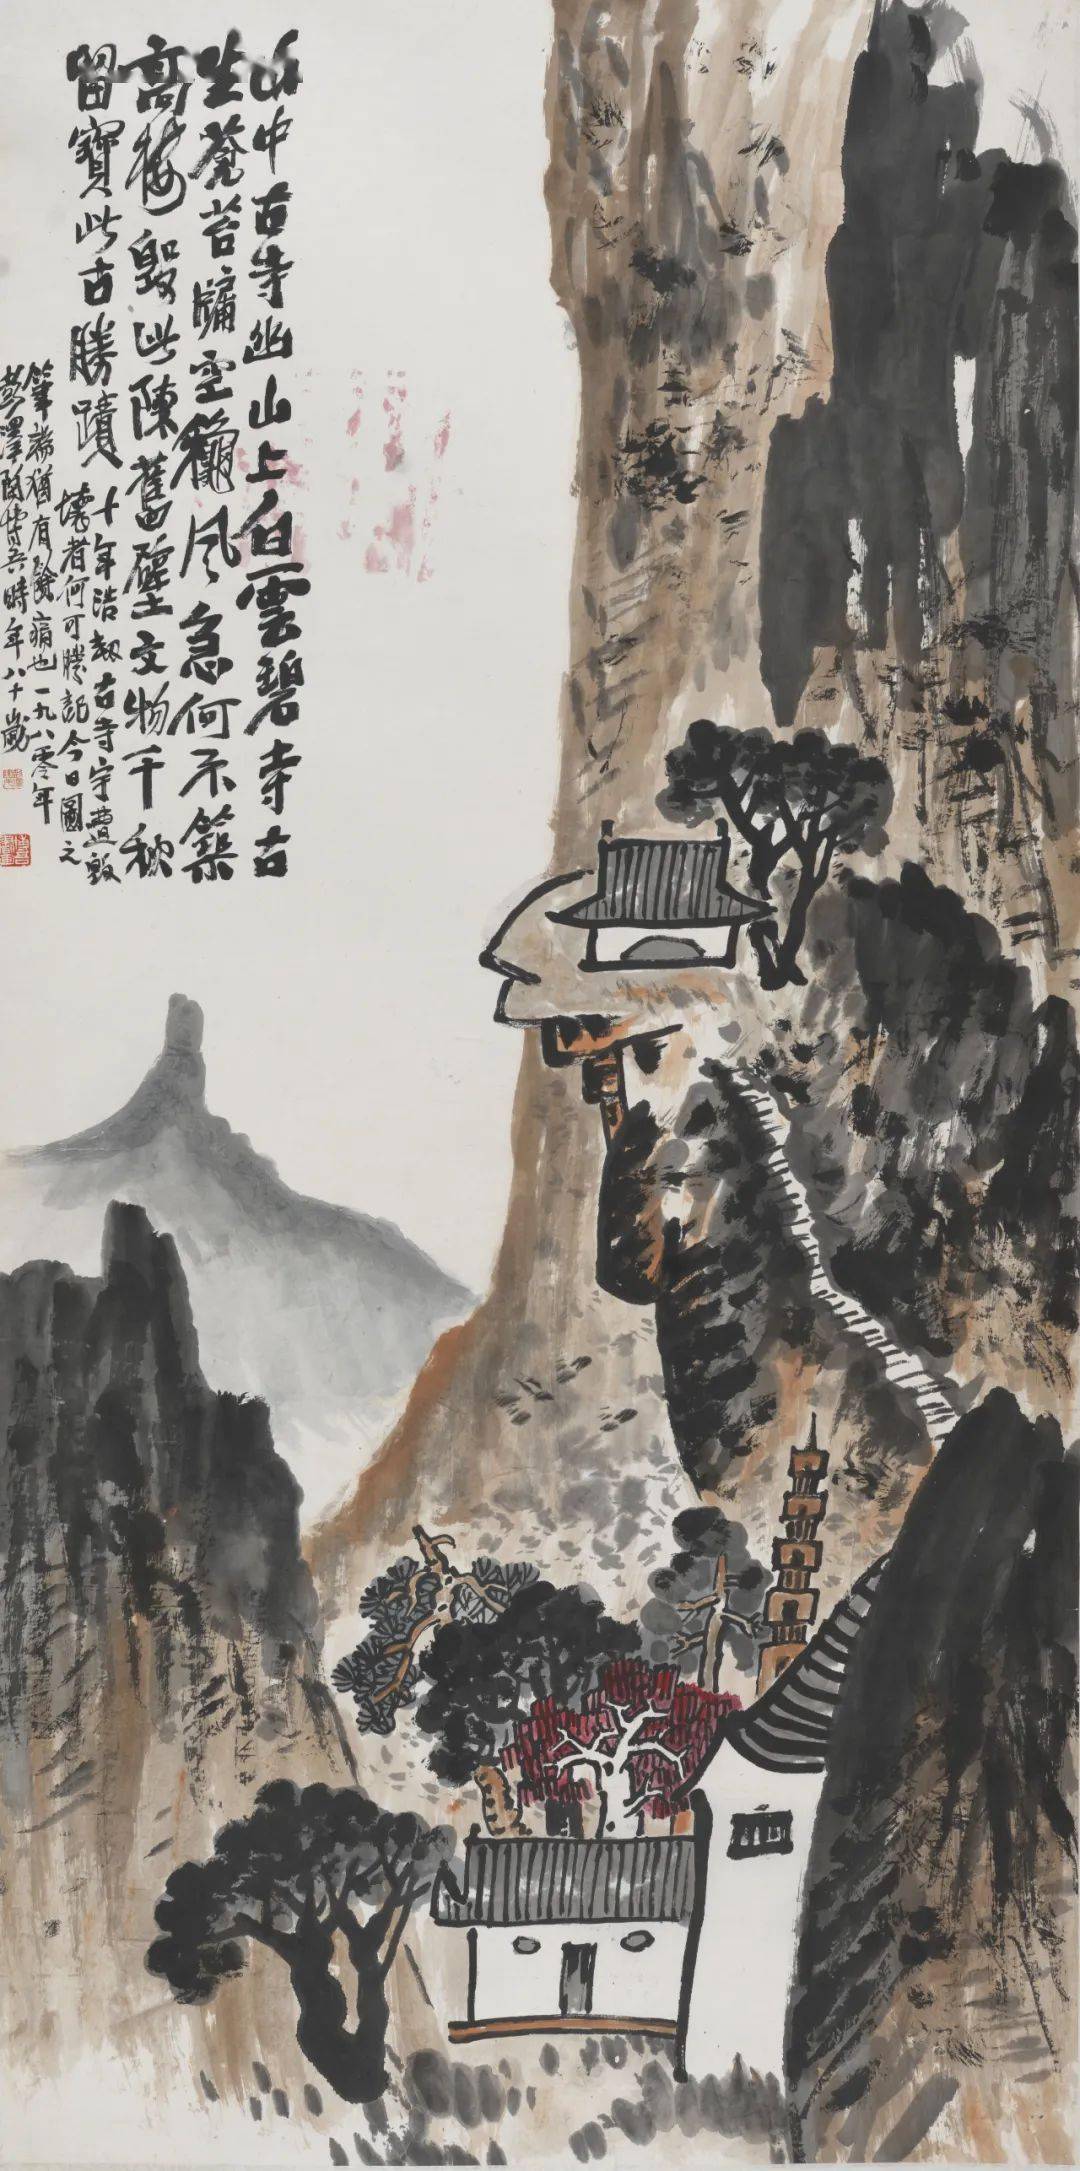 山中古寺幽山上白雲碧寺古
生蒼苔牖空龕風急何不築
高樓毀此陳舊壁文物千秋
留寶此古勝蹟
十年浩劫古寺宇遭毀
壞者何可勝記今日圖之
筆端猶有餘痛也一九八零年
彭澤陶博吾時年八十歲